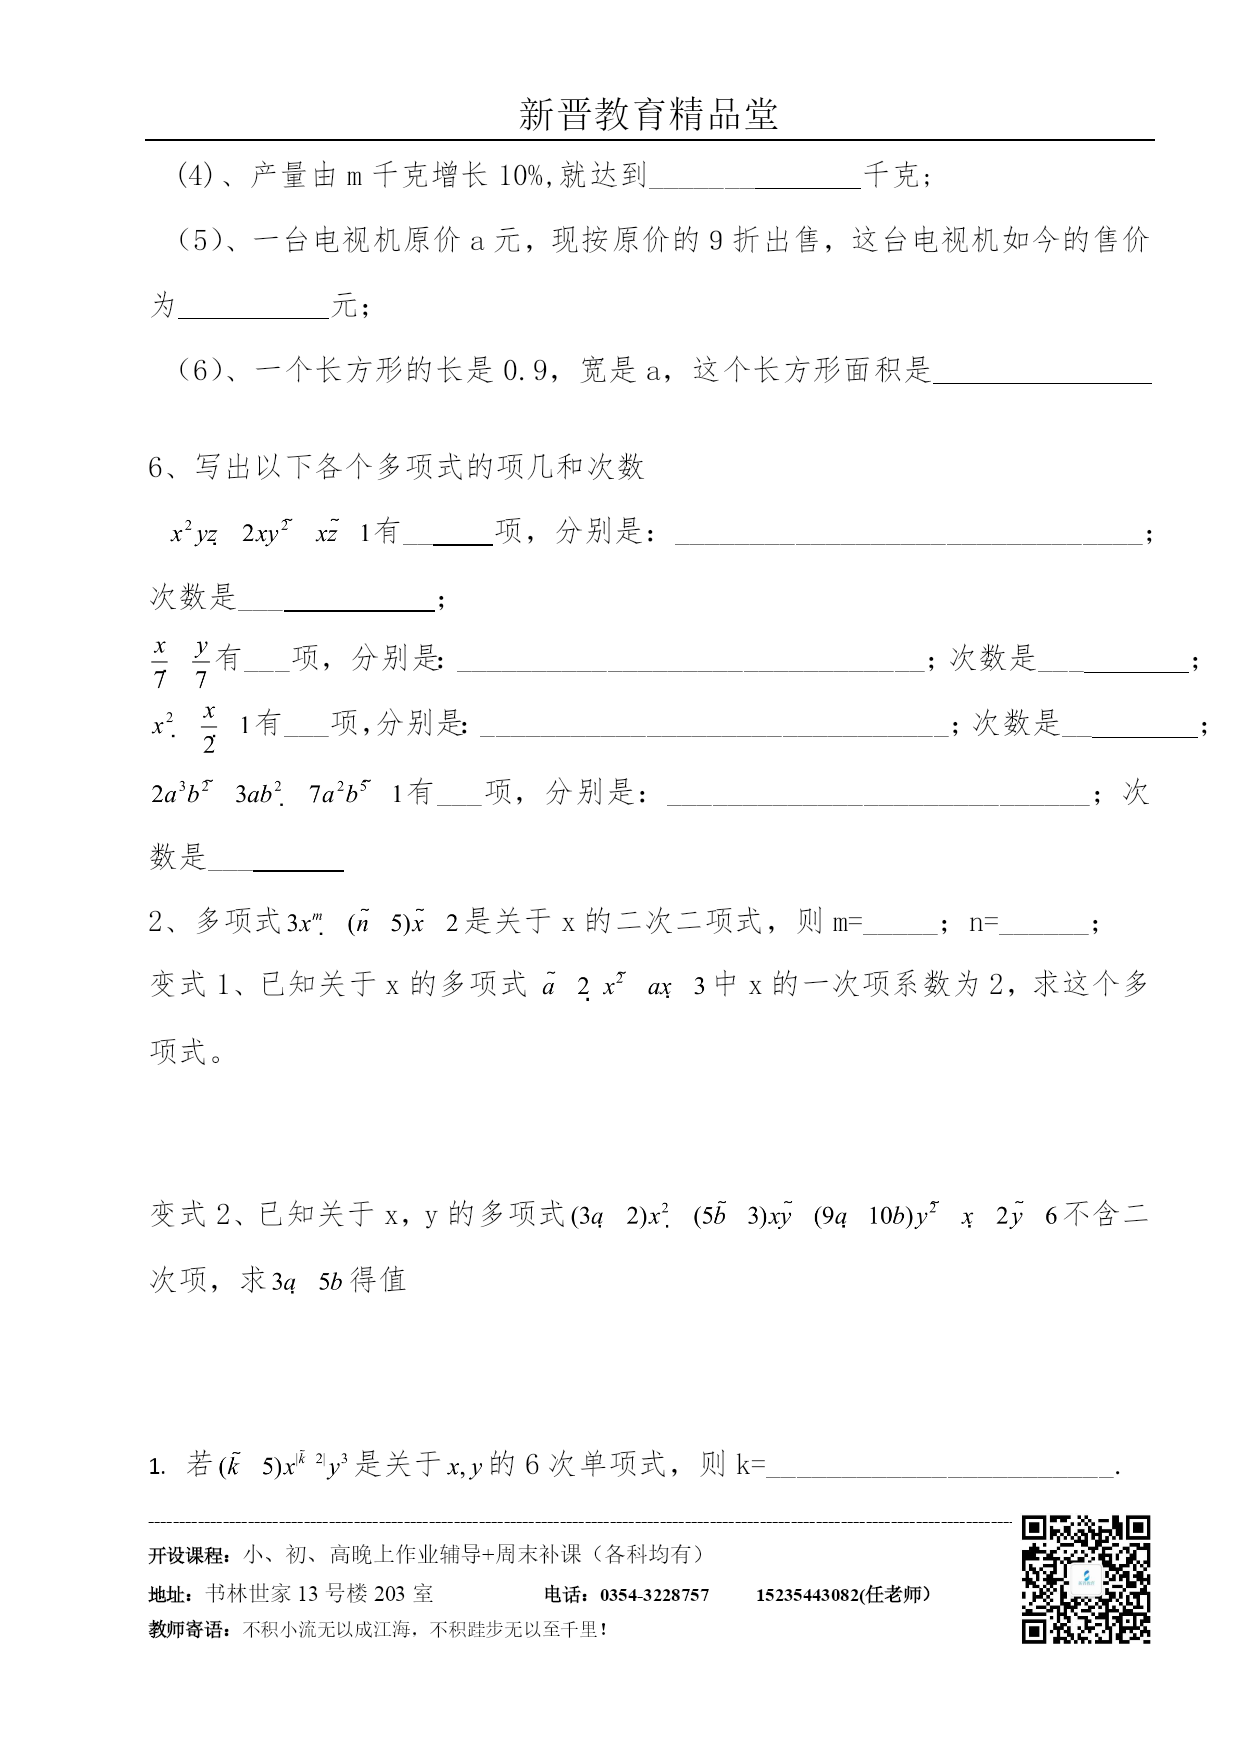 新晋教育精品堂
(4)、产量由 m 千克增长 10%,就达到_______________千克;
（5）、一台电视机原价 a 元，现按原价的 9 折出售，这台电视机如今的售价
为__________元；
（6）、一个长方形的长是 0.9，宽是 a，这个长方形面积是_______________
6、写出以下各个多项式的项几和次数
x²yz 2xy² xz 1有______项，分别是：_______________________________；
次数是_____________；
x/7 y/7有___项，分别是：_______________________________；次数是__________；
x² x/2 1有___项,分别是：_______________________________；次数是_________；
2a³b² 3ab² 7a²b⁵ 1有___项，分别是：____________________________；次
数是_________
2、多项式3xᵐ (n 5)x 2是关于 x 的二次二项式，则 m=_____；n=______；
变式 1、已知关于 x 的多项式 a 2 x² ax 3中 x 的一次项系数为 2，求这个多
项式。
变式 2、已知关于 x，y 的多项式(3a 2)x² (5b 3)xy (9a 10b)y² x 2y 6不含二
次项，求3a 5b得值
1. 若(k 5)x^|k 2|y³是关于x,y的 6 次单项式，则 k=_______________________.
开设课程：小、初、高晚上作业辅导+周末补课（各科均有）
地址：书林世家 13 号楼 203 室 电话：0354-3228757 15235443082(任老师）
教师寄语：不积小流无以成江海，不积跬步无以至千里！